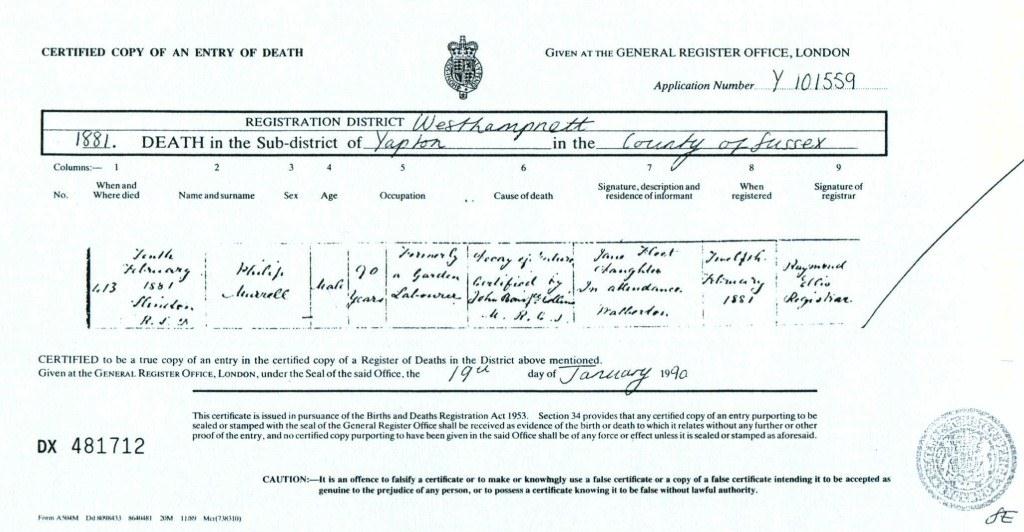 CERTIFIED COPY OF AN ENTRY OF DEATH
GIVEN AT THE GENERAL REGISTER OFFICE, LONDON
Application Number Y 101559
REGISTRATION DISTRICT Westhampnett
1881. DEATH in the Sub-district of Yapton in the County of Sussex
Columns:— 1 2 3 4 5 6 7 8 9
No. When and Where died Name and surname Sex Age Occupation Cause of death Signature, description and residence of informant When registered Signature of registrar
413
Tenth
February
1881
Slindon
Philip
Murrell
Male
90
Years
Formerly
a Garden
Labourer
Decay of Nature
Certified by
John
M. R. C. S.
Jane Fleet
Daughter
In attendance
Walberton
Twelfth
February
1881
Raymond
Ellis
Registrar.
CERTIFIED to be a true copy of an entry in the certified copy of a Register of Deaths in the District above mentioned.
Given at the GENERAL REGISTER OFFICE, LONDON, under the Seal of the said Office, the 19th day of January 1990
This certificate is issued in pursuance of the Births and Deaths Registration Act 1953. Section 34 provides that any certified copy of an entry purporting to be
sealed or stamped with the seal of the General Register Office shall be received as evidence of the birth or death to which it relates without any further or other
proof of the entry, and no certified copy purporting to have been given in the said Office shall be of any force or effect unless it is sealed or stamped as aforesaid.
DX 481712
CAUTION:—It is an offence to falsify a certificate or to make or knowingly use a false certificate or a copy of a false certificate intending it to be accepted as
genuine to the prejudice of any person, or to possess a certificate knowing it to be false without lawful authority.